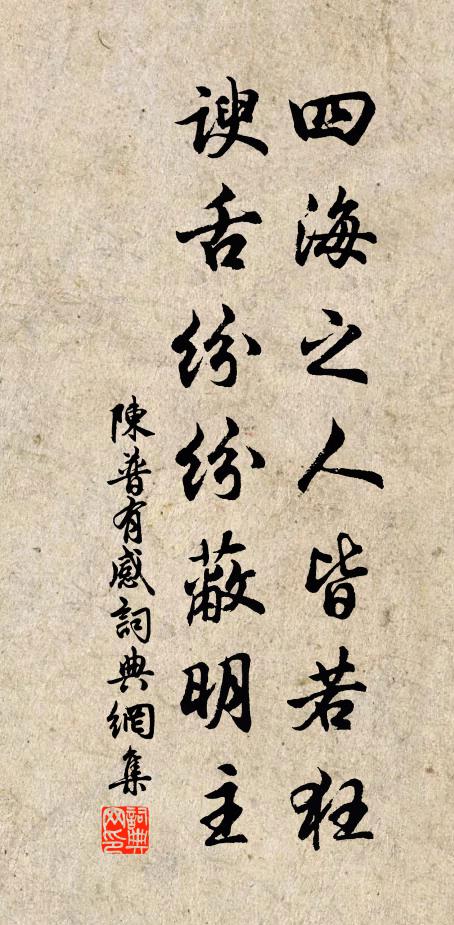 四海之人皆若狂
諛舌紛紛蔽明主
陳普有感詞典網集
詞典網印